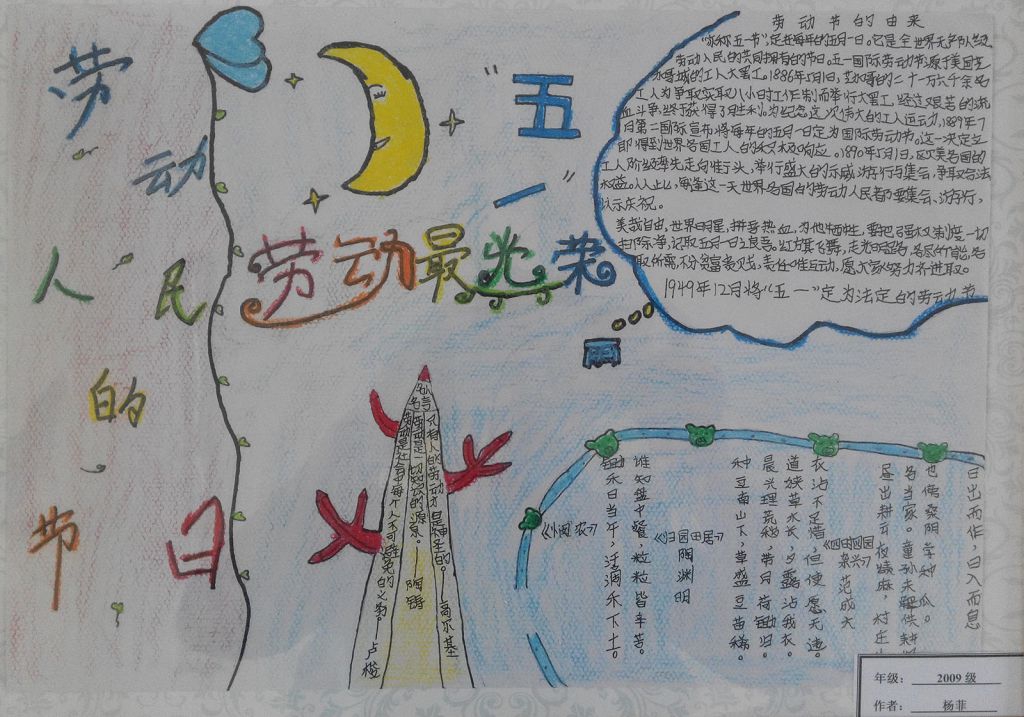 劳
动
人
民
的
节
日
“五
一”
劳动最光荣
劳动节的由来
"亦称五一节",定在每年的五月一日。它是全世界无产阶级、
劳动人民的共同拥有的节日。五一国际劳动节源于美国芝
加哥城的工人大罢工。1886年5月1日,芝加哥的二十一万六千余名
工人为争取实取八小时工作制而举行大罢工,经过艰苦的流
血斗争,终于获得了胜利。为纪念这次伟大的工人运动,1889年7
月第二国际宣布将每年的五月一日定为国际劳动节。这一决定立
即得到世界各国工人的积极响应。1890年5月1日,欧美各国的
工人阶级率先走向街头,举行盛大的示威游行与集会,争取合法
权益。从此,每逢这一天世界各国的劳动人民都要集会、游行,
以示庆祝。
美哉自由,世界明星,拼吾热血,为他牺牲,要把强权制度一切
扫除净,记取五月一日之良辰。红旗飞舞,走光明路,各尽所能,各
取所需,不分贫富贵贱,责任唯互动,愿大家努力齐进取。
1949年12月将“五一”定为法定的劳动节
名言
只有人的劳动才是神圣的。—高尔基
劳动是一切知识的源泉。—陶铸
劳动是社会中每个人不可避免的义务。—卢梭
日出而作,日入而息
《四时田园
杂兴》
范成大
昼出耕耘夜绩麻,村庄
各当家。童孙未解供耕
也傍桑阴学种瓜。
《归园田居》
陶渊明
种豆南山下,草盛豆苗稀。
晨兴理荒秽,带月荷锄归。
道狭草木长,夕露沾我衣。
衣沾不足惜,但使愿无违。
《悯农》
锄禾日当午,汗滴禾下土。
谁知盘中餐,粒粒皆辛苦。
年级: 2009级
作者: 杨菲